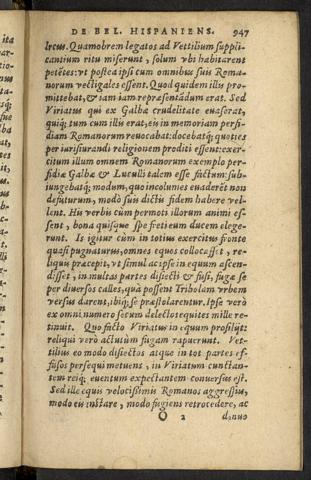 DE BEL. HISPANIENS. 947
lrcus. Quamobrem legatos ad Vettilium suppli-
cantium ritu miserunt, solum vbi habitarent
petētes: vt postea ipsi cum omnibus suis Roma-
norum vectigales essent. Quod quidem illis pro-
mittebat, & iam iam repræsentādum erat. Sed
Viriatus qui ex Galbæ crudelitate euaserat,
quiq; tum cum illis erat, eis in memoriam perfi-
diam Romanorum reuocabat: docebatq; quoties
per iurisiurandi religionem proditi essent: exer-
citum illum omnem Romanorum exemplo per-
fidiæ Galbæ & Luculli talem esse factum: sub-
iungebatq; modum, quo incolumes euaderēt non
defuturum, modò suis dictis fidem habere vel-
lent. His verbis cùm permoti illorum animi es-
sent, bona quisque spe fretī eum ducem elege-
runt. Is igitur cùm in totius exercitus fronte
quasi pugnaturus, omnes equos collocasset, re-
liquis præcepit, vt simul ac ipse in equum ascen-
disset, in multas partes disiecti & fusi, fugæ se
per diuersos calles, quà possent Tribolam vrbem
versus darent, ibiq; se præstolarentur. Ipse verò
ex omni numero secum delectos equites mille re-
tinuit. Quo facto Viriatus in equum prosilijt:
reliqui verò actutùm fugam rapuerunt. Vet-
tilius eo modo disiectos atque in tot partes ef-
fusos persequi metuens, in Viriatum cunctan-
tem reiq; euentum expectantem conuersus est.
Sed ille equis velocissimis Romanos aggressus,
modo eis instare, modo fugiens retrocedere, ac
O 2 denuo
ita